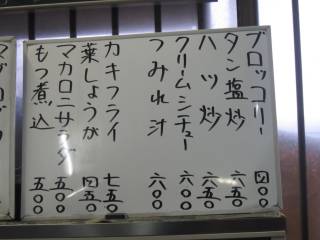 ブロッコリー 四〇〇
タン塩炒 六五〇
ハツ炒 六五〇
クリームシチュー 六〇〇
つみれ汁 六〇〇
カキフライ 七五〇
葉しょうが 四五〇
マカロニサラダ 五五〇
もつ煮込 五〇〇